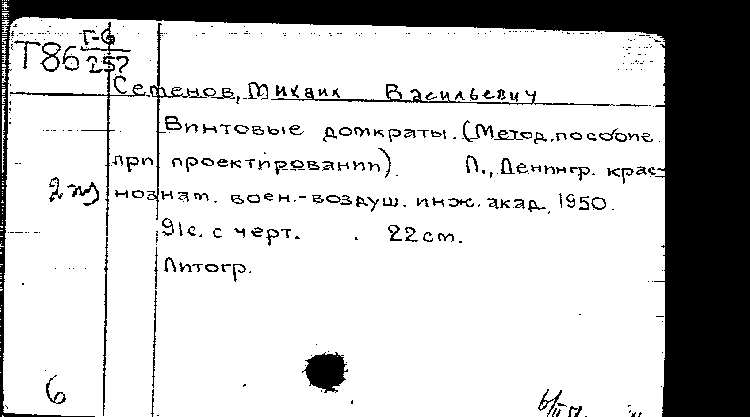 Г-6
Т86 257
Семенов, Михаил Васильевич
Винтовые домкраты. (Метод. пособие
при проектировании). Л., Ленингр. крас-
2 нознам. воен.-воздуш. инж. акад., 1950.
91с. с черт. 22 см.
Литогр.
6